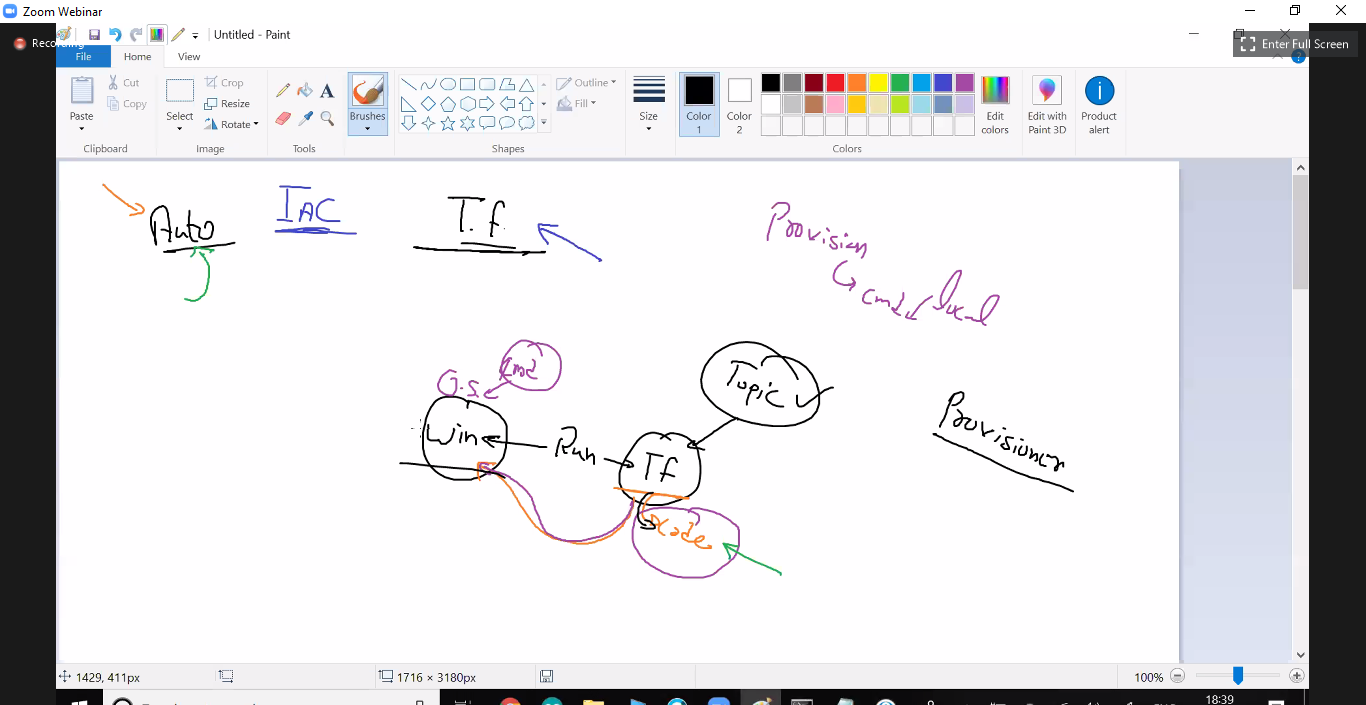 Zoom Webinar
Recording
Untitled - Paint
Enter Full Screen
File Home View
Paste
Cut
Copy
Clipboard
Select
Crop
Resize
Rotate
Image
Tools
Brushes
Shapes
Outline
Fill
Size
Color 1
Color 2
Colors
Edit colors
Edit with Paint 3D
Product alert
Auto
IAC
T.f.
Provision
cmd / local
cmd
O.S.
Win
Run
Tf
Topic
Code
Provisioner
1429, 411px
1716 × 3180px
100%
18:39